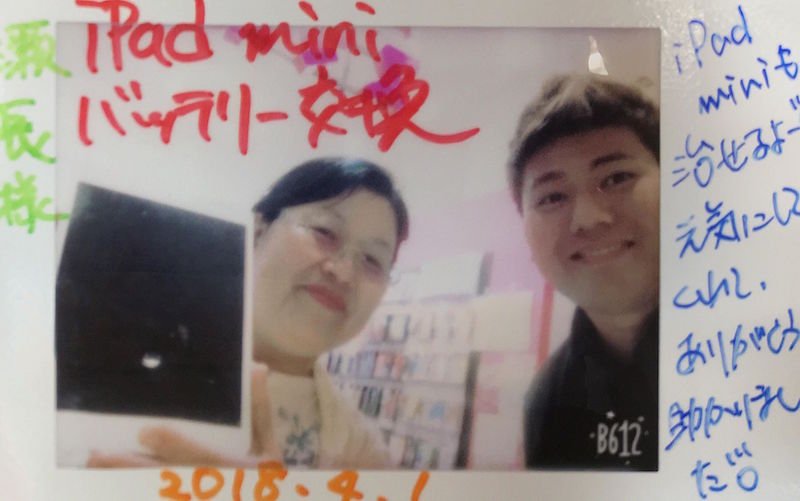 iPad mini
バッテリー交換
瀬長様
iPad
miniも
治せるよー
元気にして
くれて、
ありがとう
助かりまし
た
B612
2018.4.1